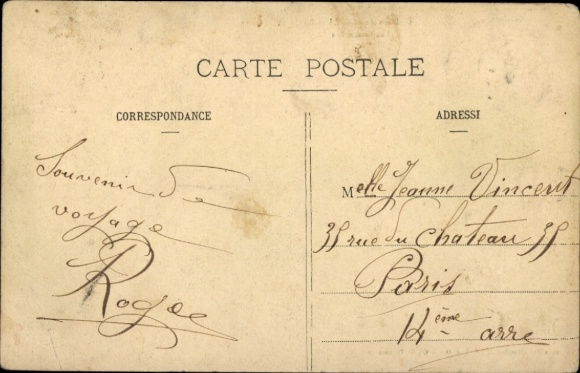 CARTE POSTALE
CORRESPONDANCE
ADRESSI
Souvenir de
voyage
Roger
Melle Jeanne Vincent
35 rue du Chateau 35
Paris
14ème arre